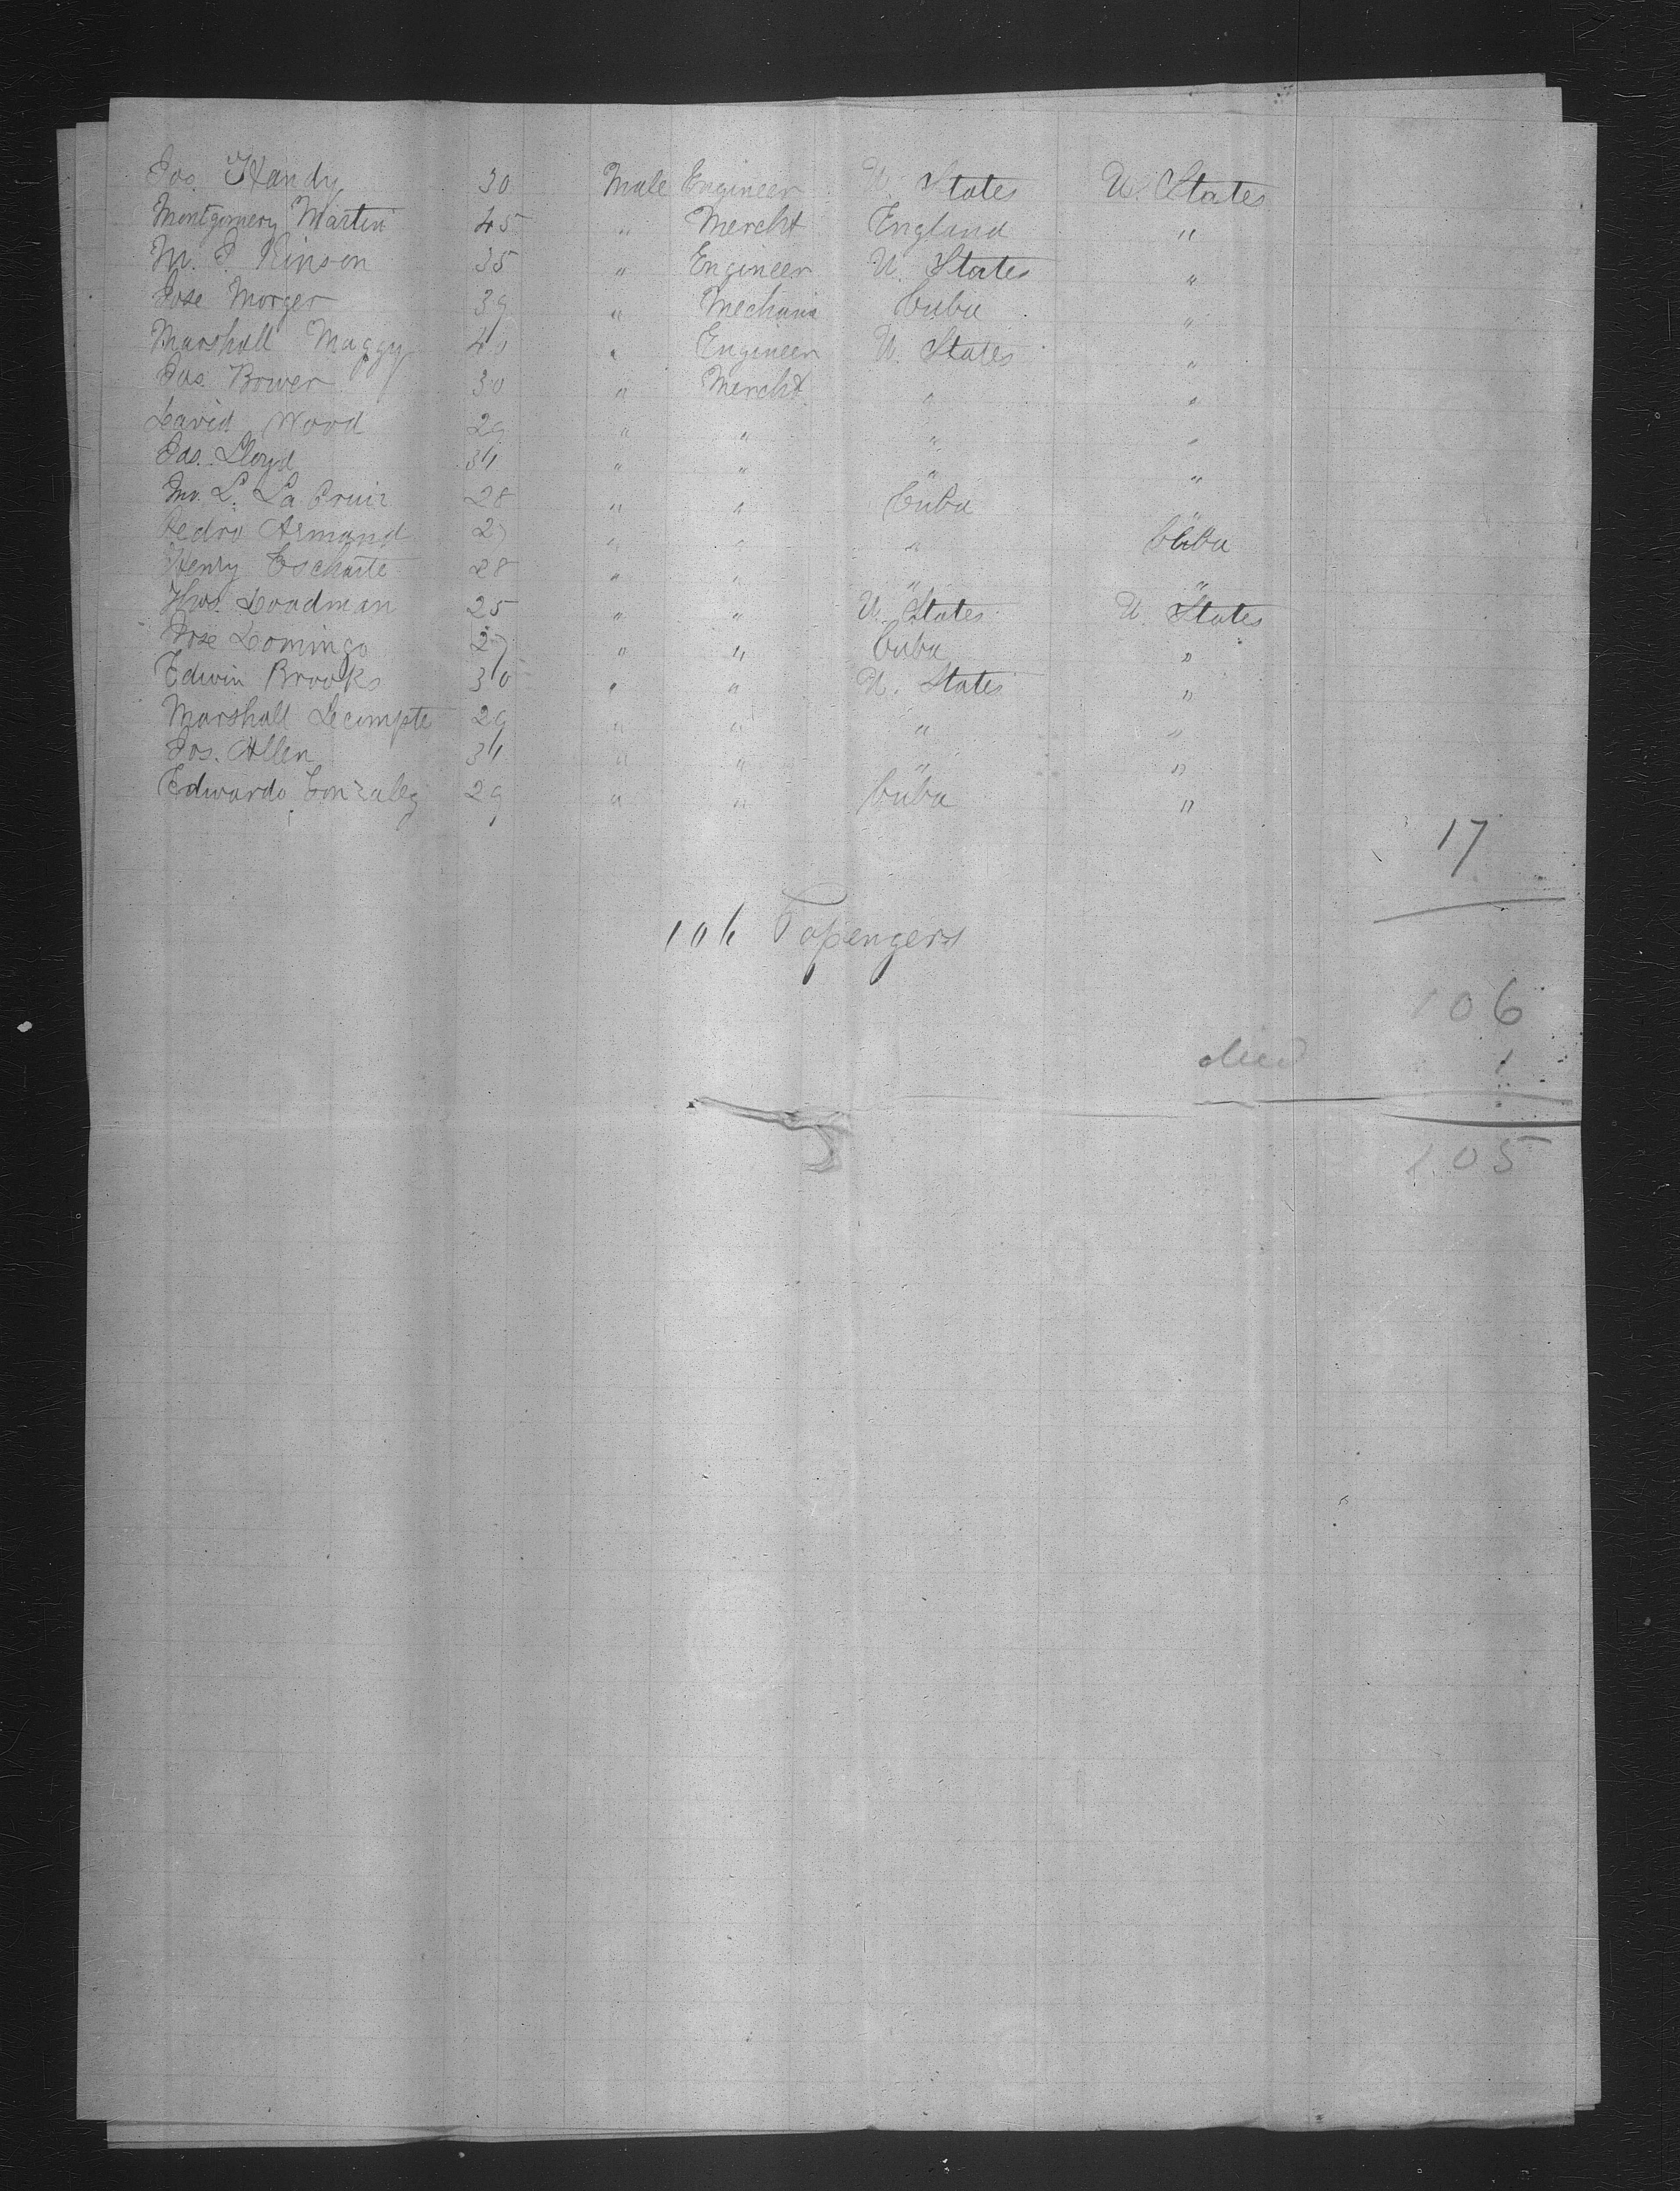 Jos. Handy 30 Male Engineer U. States U. States
Montgomery Martin 45 " Mercht England "
M. P. Kinson 35 " Engineer U. States "
Jose Morger 39 " Mechanic Cuba "
Marshall Maggy 40 " Engineer U. States "
Jas. Bower 30 " Mercht " "
David Wood 29 " " " "
Jas. Lloyd 34 " " " "
L. La Cruiz 28 " " Cuba "
Pedro Armand 27 " " " Cuba
Henry Eschaite 28 " " " "
Thos. Goodman 25 " " U. States U. States
Jose Domingo 27 " " Cuba "
Edwin Brooks 30 " " U. States "
Marshall Lecompte 29 " " " "
Jos. Allen 34 " " " "
Edwardo Gonzalez 29 " " Cuba "
17
106 Passengers
106
died 1
105